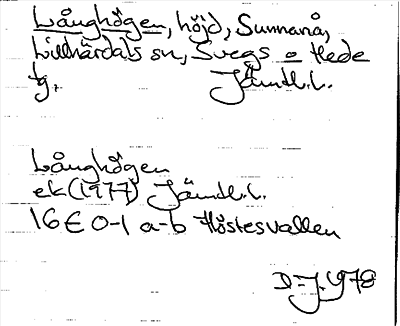 Långhögen, höjd, Sunnanå,
Lillhärdals sn, Svegs o Hede
tg. Jämtl.l.
Långhögen
ek (1977) Jämtl.l.
16E 0-1 a-b Flöstesvallen
D-J. 1978